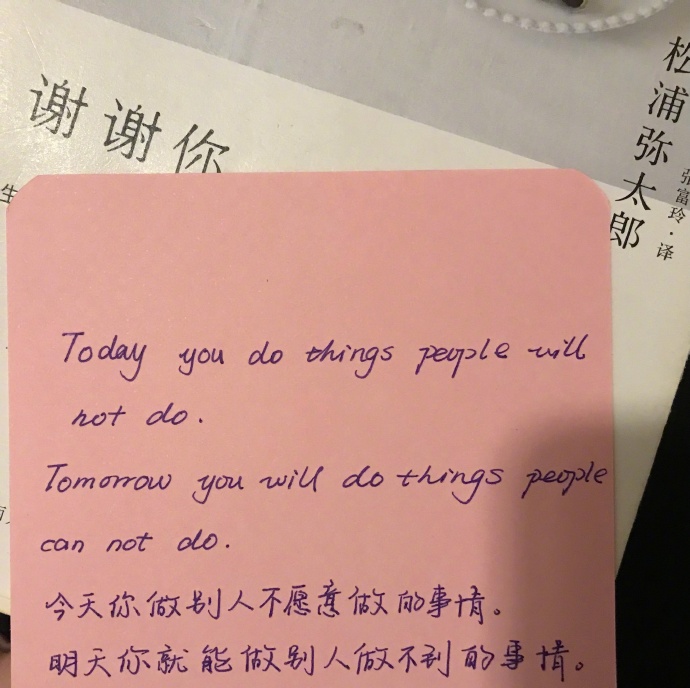 谢谢你
松浦弥太郎
张富玲·译
生
Today you do things people will
not do.
Tomorrow you will do things people
can not do.
今天你做别人不愿意做的事情。
明天你就能做别人做不到的事情。